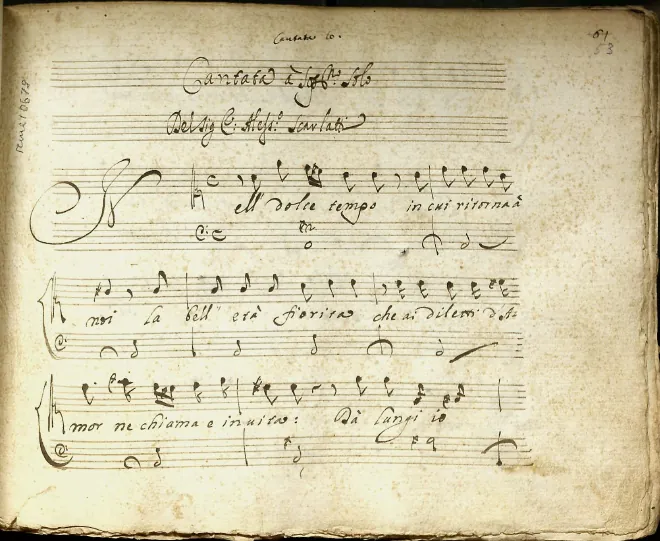 Cantata 10.
61
53
Cantata à Sop.no Solo
Del Sig.r C: Aless.o Scarlatti
Nell' dolce tempo in cui ritorna à
noi la bell' età fiorita che ai diletti d'A-
mor ne chiama e invita: Dà lungi io